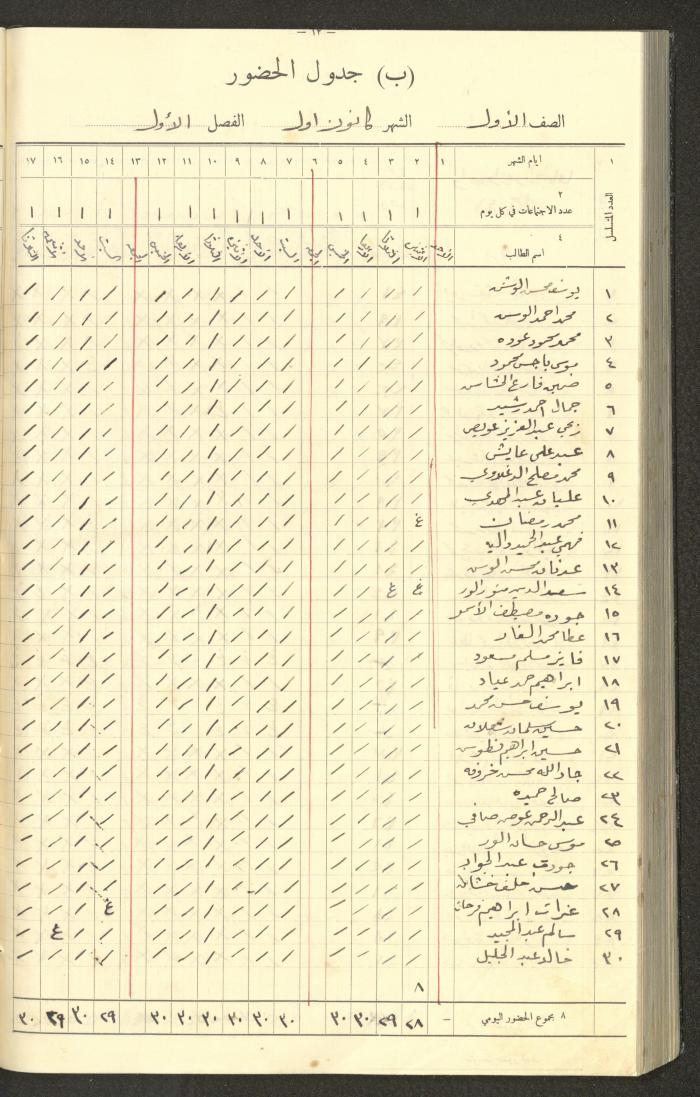 — ١٢ —
(ب) جدول الحضور
الصف الأول الشهر كانون اول الفصل الأول
١ ايام الشهر ١ ٢ ٣ ٤ ٥ ٦ ٧ ٨ ٩ ١٠ ١١ ١٢ ١٣ ١٤ ١٥ ١٦ ١٧
العدد المتسلسل
٢
عدد الاجتماعات في كل يوم ١ ١ ١ ١ ١ ١ ١ ١ ١ ١ ١ ١ ١ ١
٤
اسم الطالب الأحد الاثنين الثلاثا الاربعا الخميس الجمعة السبت الاحد الاثنين الثلاثا الاربعا الخميس الجمعة السبت الاحد الاثنين الثلاثا
١ يوسف محسن الوشن / / / / / / / / / / / / / /
٢ محمد احمد / / / / / / / / / / / / / /
٣ محمد محمود عوده / / / / / / / / / / / / / /
٤ موسى باجس محمود / / / / / / / / / / / / / /
٥ فارع / / / / / / / / / / / / / /
٦ جمال احمد رشيد / / / / / / / / / / / / / /
٧ زبحي عبد العزيز عويص / / / / / / / / / / / / / /
٨ عبد علي عايش / / / / / / / / / / / / / /
٩ محمد مصلح / / / / / / / / / / / / / /
١٠ عليان عبد المهدي / / / / / / / / / / / / / /
١١ محمد رمضان غ / / / / / / / / / / / / /
١٢ فهمي عبد الحميد / / / / / / / / / / / / / /
١٣ عدنان محسن / / / / / / / / / / / / / /
١٤ سعد الدين غ غ / / / / / / / / / / / /
١٥ جوده مصطفى الأسمر / / / / / / / / / / / / / /
١٦ عطا محمد / / / / / / / / / / / / / /
١٧ فايز مسلم مسعود / / / / / / / / / / / / / /
١٨ ابراهيم حمد عياد / / / / / / / / / / / / / /
١٩ يوسف حسن محمد / / / / / / / / / / / / / /
٢٠ حسين سلمان / / / / / / / / / / / / / /
٢١ حسين ابراهيم / / / / / / / / / / / / / /
٢٢ جاد الله محسن خروفه / / / / / / / / / / / / / /
٢٣ صالح حميده / / / / / / / / / / / / / /
٢٤ عبد الرحمن عوض صافي / / / / / / / / / / / / / /
٢٥ موسى حسان / / / / / / / / / / / / / /
٢٦ جودت عبد الجواد / / / / / / / / / / / / / /
٢٧ حسن خلف / / / / / / / / / / / / / /
٢٨ ابراهيم فرحان / / / / / / / / / / غ / / /
٢٩ سالم عبد المجيد / / / / / / / / / / / / غ /
٣٠ خالد عبد الجليل / / / / / / / / / / / / / /
٨
٨ مجموع الحضور اليومي — ٢٨ ٢٩ ٣٠ ٣٠ ٣٠ ٣٠ ٣٠ ٣٠ ٣٠ ٣٠ ٢٩ ٣٠ ٢٩ ٣٠